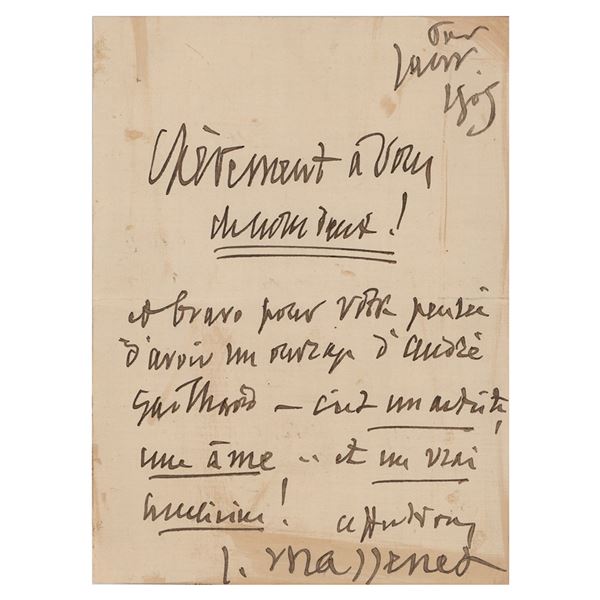 janv.
1905
Chèrement à vous
de nous deux !
et bravo pour votre pensée
d'avoir un ouvrage d'André
Gailhard — c'est un artiste,
une âme .. et un vrai
musicien !
J. Massenet